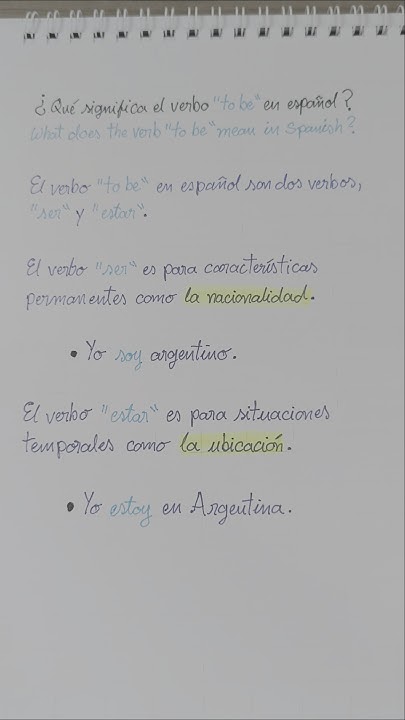 ¿Qué significa el verbo "to be" en español?
What does the verb "to be" mean in Spanish?
El verbo "to be" en español son dos verbos,
"ser" y "estar".
El verbo "ser" es para características
permanentes como la nacionalidad.
• Yo soy argentino.
El verbo "estar" es para situaciones
temporales como la ubicación.
• Yo estoy en Argentina.